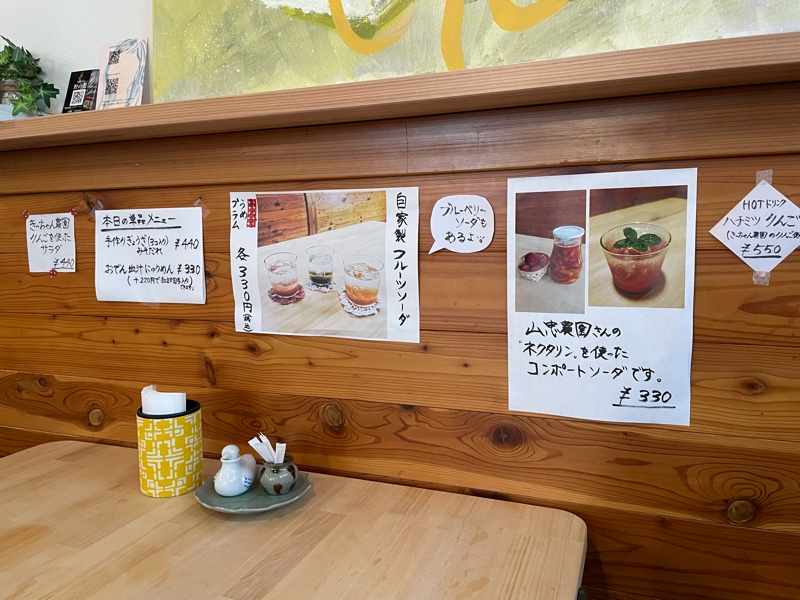 きっちゃん農園
りんごを使った
サラダ
¥440
本日の単品メニュー
手作りぎょうざ(3コ入り) ¥440
みそだれ
おでん出汁にゅうめん ¥330
うめ
プラム
各330円(税込)
自家製フルーツソーダ
ブルーベリー
ソーダも
あるよ
山忠農園さんの
"ネクタリン"を使った
コンポートソーダです。
¥330
HOTドリンク
ハチミツりんご
(きっちゃん農園のりんご使
¥550